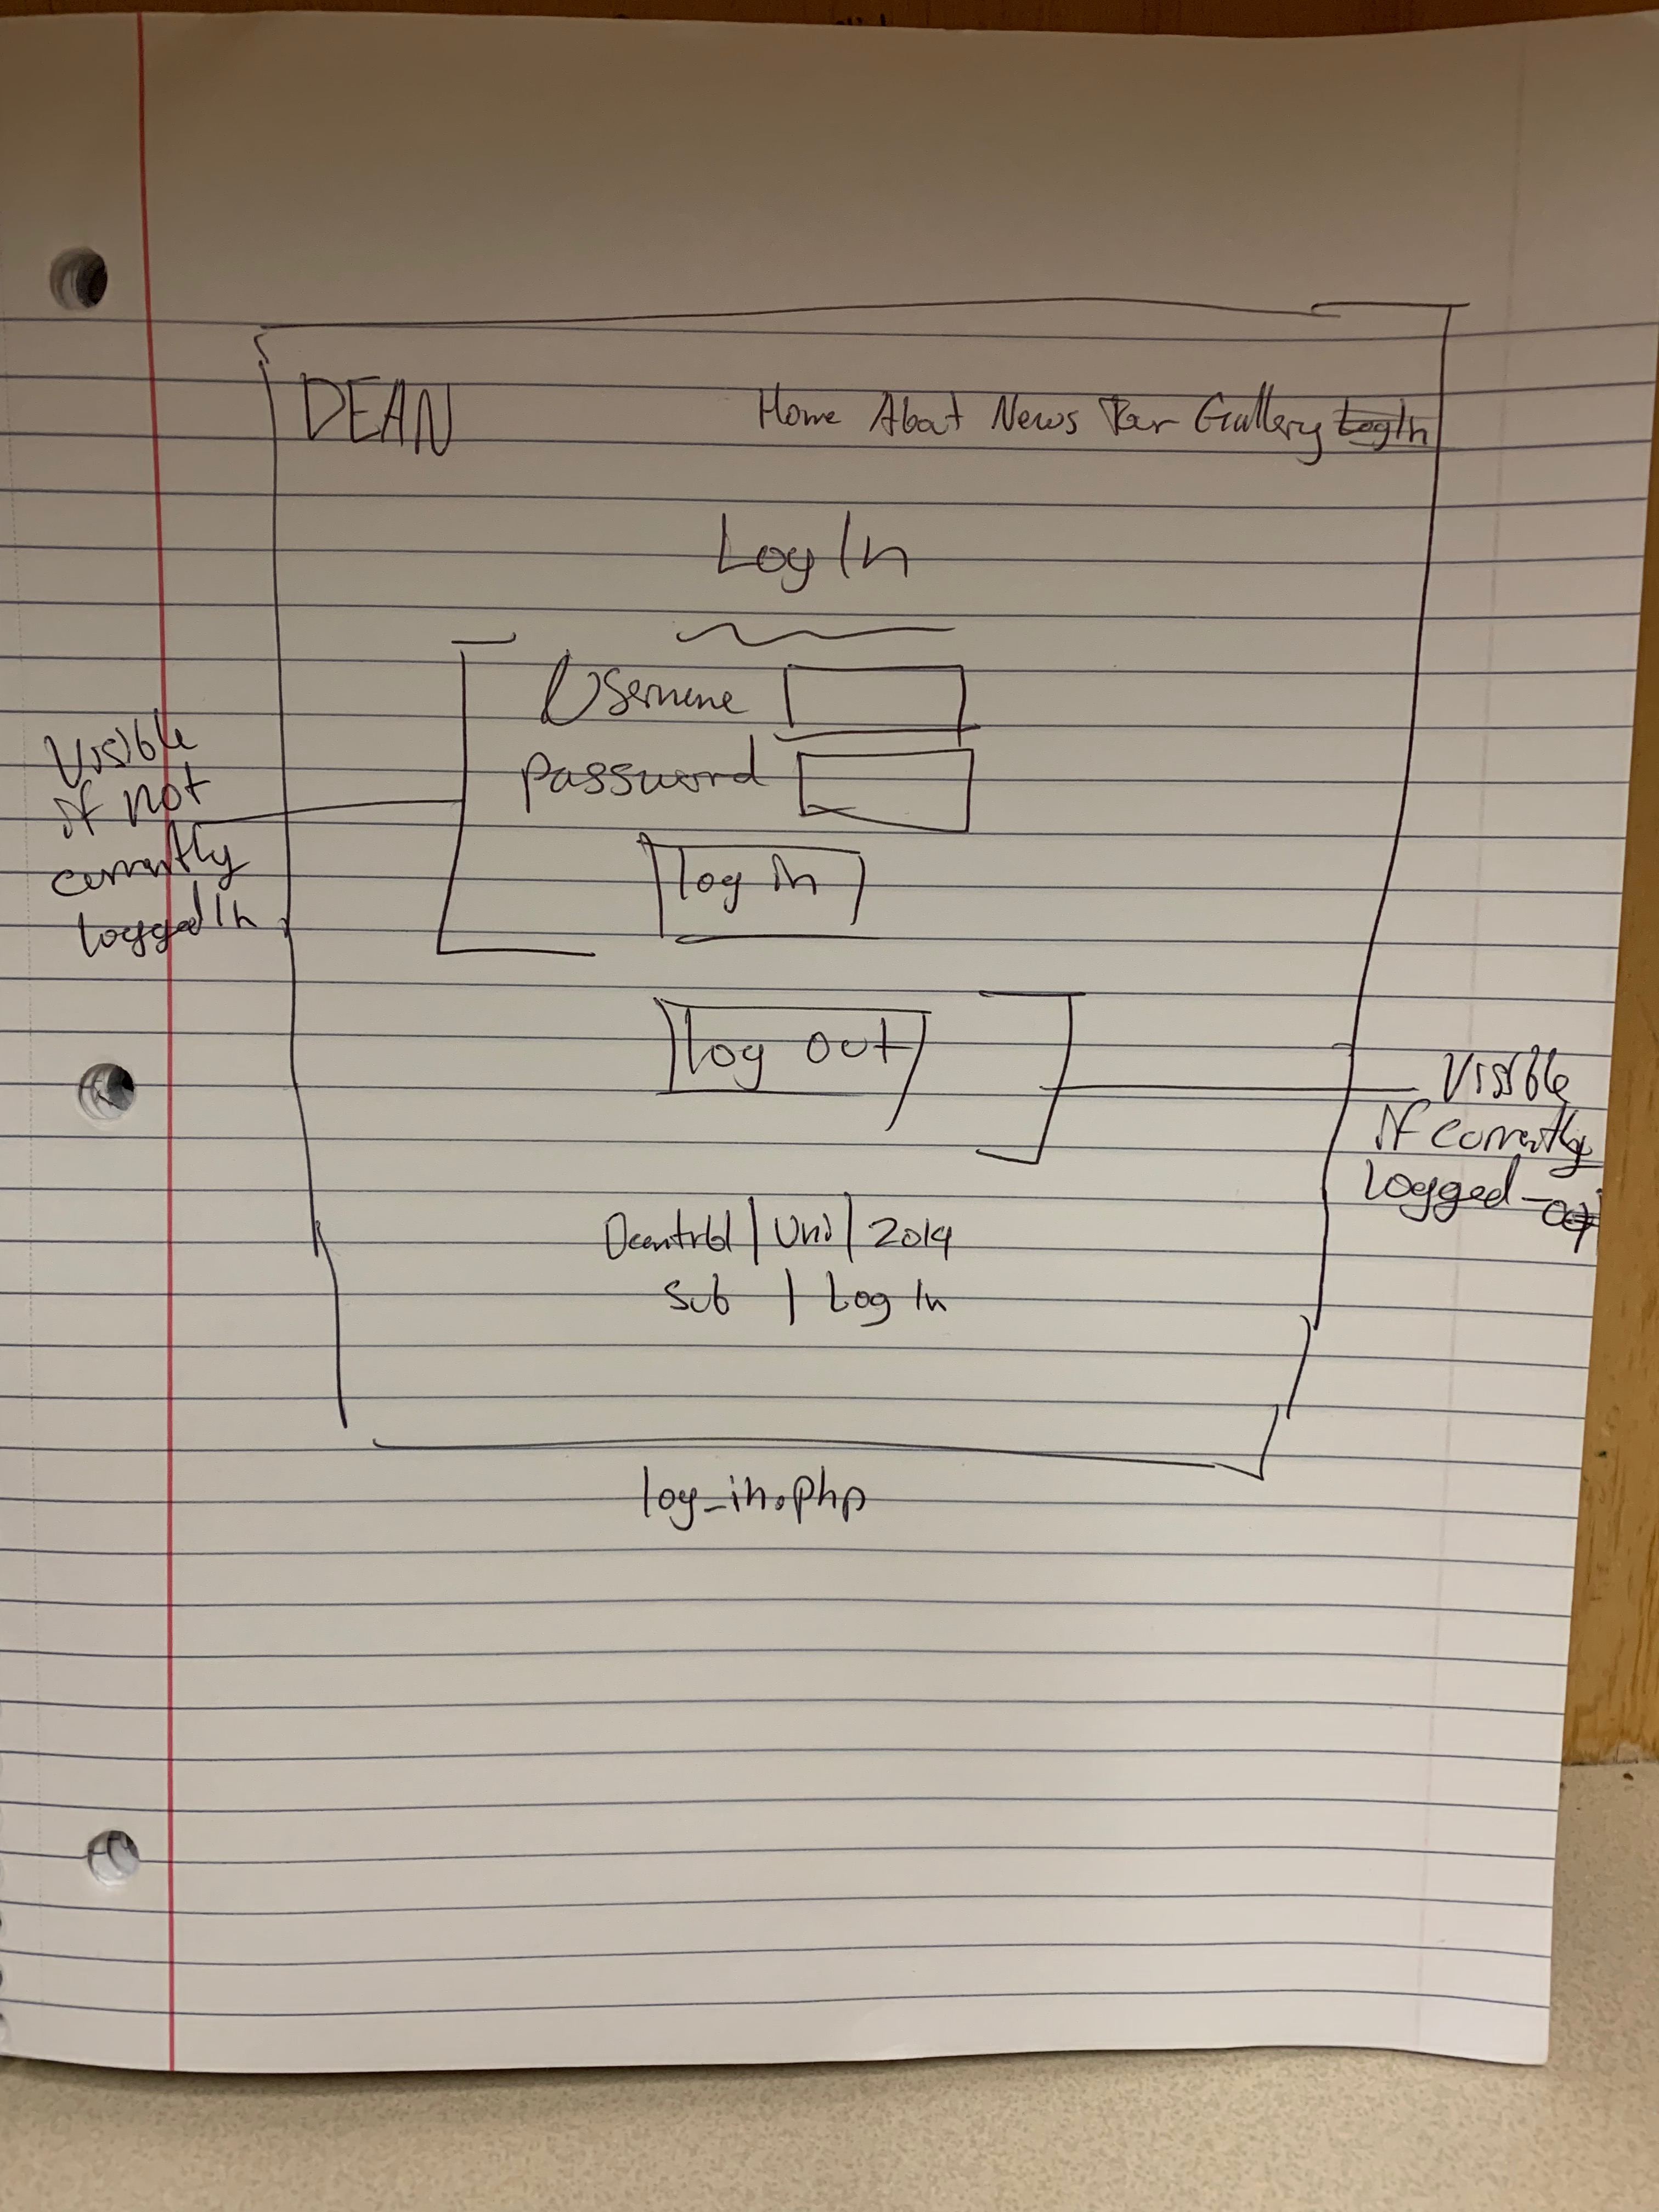 DEAN
Home About News Gallery Log In
Log In
Username
password
log in
Visible
if not
currently
logged In
log out
Visible
if currently
logged -
| Uni | 2019
Sub | Log In
log_in.php